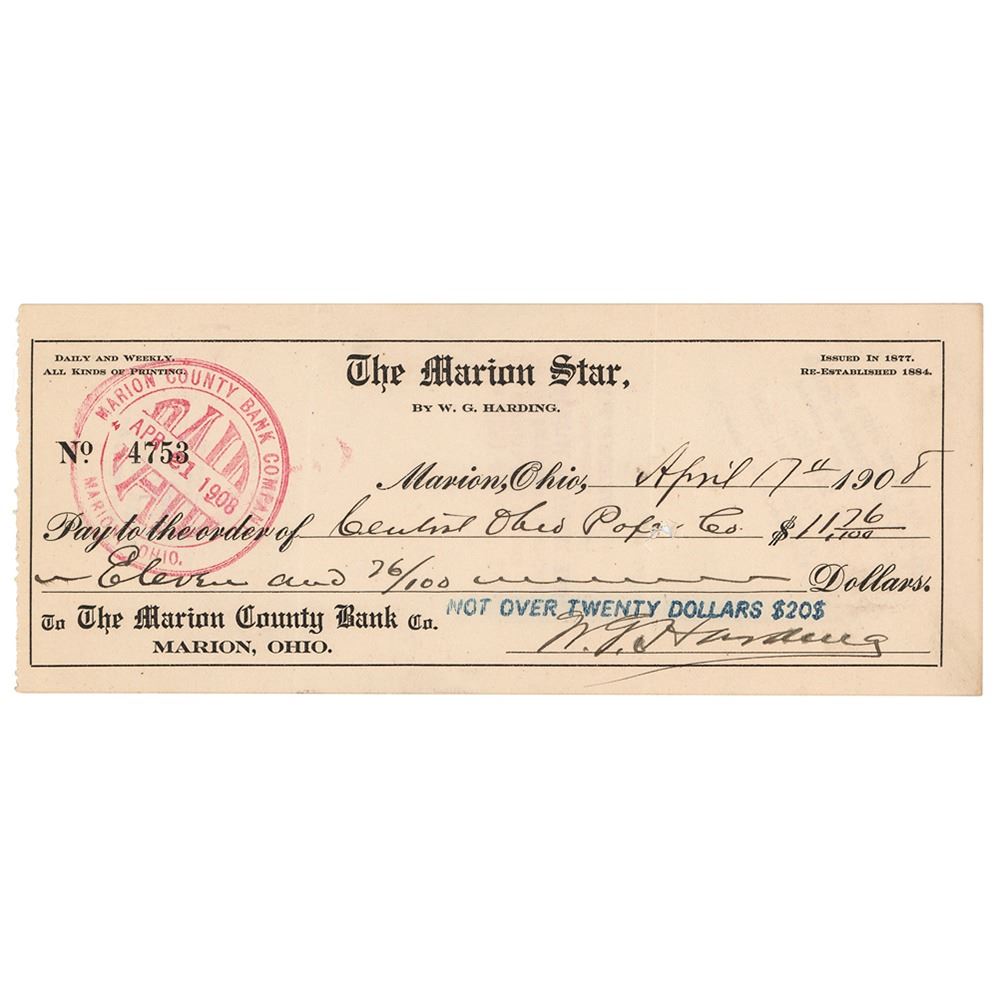 DAILY AND WEEKLY.
ALL KINDS OF PRINTING.
The Marion Star,
BY W. G. HARDING.
ISSUED IN 1877.
RE-ESTABLISHED 1884.
MARION COUNTY BANK COMPANY
PAID
APR 21 1908
MARION, OHIO.
No 4753
Marion, Ohio, April 17" 1908
Pay to the order of Central Ohio Co. $11.26/100
Eleven and 26/100 Dollars.
NOT OVER TWENTY DOLLARS $20$
To The Marion County Bank Co.
MARION, OHIO.
W. G. Harding